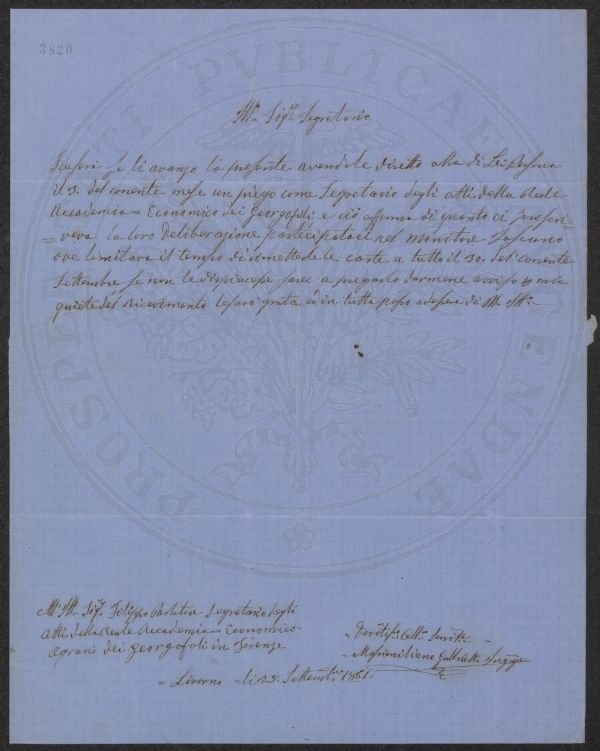 3820
PROSPERITATI PUBLICAE AUGENDAE
Ill.mo Sig.r Segretario
Scuserà se li avanzo la presente avendole diretto alla di Lei
il 3. del corrente mese un piego come Segretario degli atti della Reale
Accademia = Economico dei Georgofili e ciò a di quanto ci prescri=
=veva la loro Deliberazione partecipataci nel monitore Toscano
ove limitava il tempo di rimettede le carte a tutto il 30. del corrente
Settembre se non le dispiacesse sarei a pregarlo darmene avviso p mia
quiete del ricevimento le sarò grato ed in tutto posso adesera di
Sig.r Filippo Segretario degli
atti della Reale Accademia = Economico
agrario dei Georgofili in Firenze
- Devotis.o Obb.o Servit.e -
- Massimiliano
- Livorno - li 25. Settembre 1861.